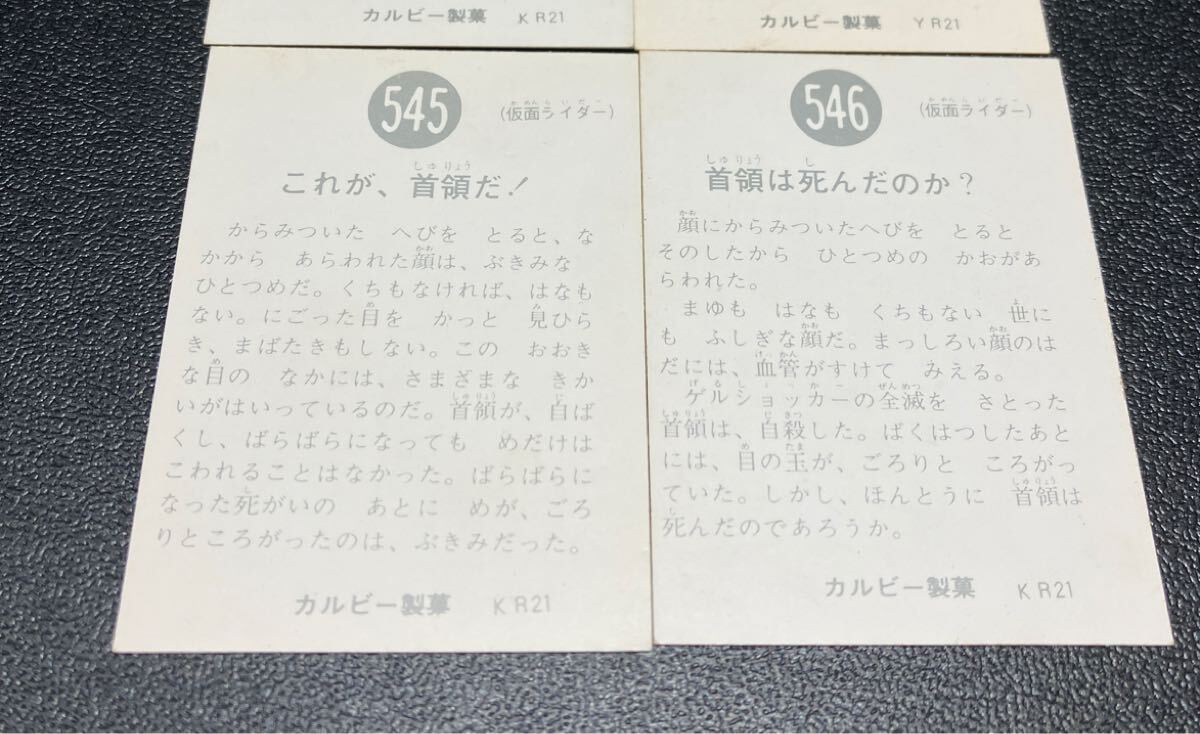 カルビー製菓 KR21
カルビー製菓 YR21
545
(仮面ライダー)
これが、首領だ!
からみついた へびを とると、な
かから あらわれた顔は、ぶきみな
ひとつめだ。くちもなければ、はなも
ない。にごった目を かっと 見ひら
き、まばたきもしない。この おおき
な目の なかには、さまざまな きか
いがはいっているのだ。首領が、自ば
くし、ばらばらになっても めだけは
こわれることはなかった。ばらばらに
なった死がいの あとに めが、ごろ
りところがったのは、ぶきみだった。
カルビー製菓 KR21
546
(仮面ライダー)
首領は死んだのか?
顔にからみついたへびを とると
そのしたから ひとつめの かおがあ
らわれた。
まゆも はなも くちもない 世に
も ふしぎな顔だ。まっしろい顔のは
だには、血管がすけて みえる。
ゲルショッカーの全滅を さとった
首領は、自殺した。ばくはつしたあと
には、目の玉が、ごろりと ころがっ
ていた。しかし、ほんとうに 首領は
死んだのであろうか。
カルビー製菓 KR21